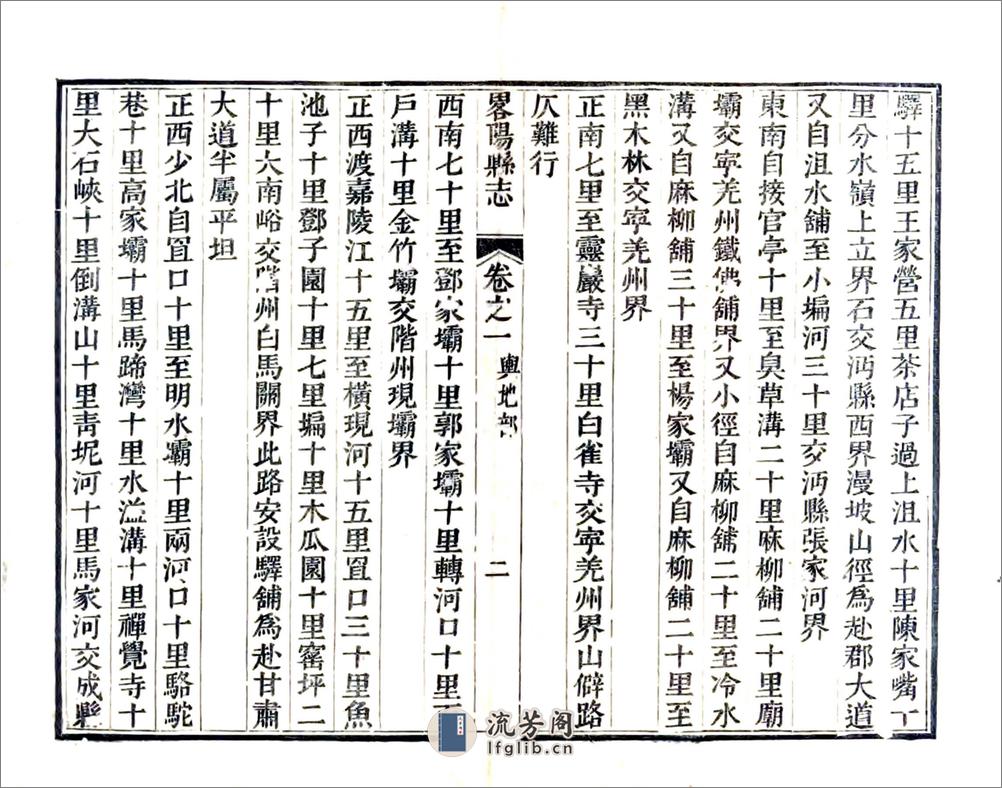 驛十五里王家營五里茶店子過上沮水十里陳家嘴丁
里分水嶺上立界石交沔縣西界漫坡山徑為赴郡大道
又自沮水舖至小堛河三十里交沔縣張家河界
東南自接官亭十里至臭草溝二十里麻柳舖二十里廟
壩交寕羌州鐵佛舖界又小徑自麻柳舖二十里至冷水
溝又自麻柳舖三十里至楊家壩又自麻柳舖二十里至
黑木林交寕羌州界
正南七里至靈巖寺三十里白雀寺交寕羌州界山僻路
仄難行
畧陽縣志
卷之一
輿地部
二
西南七十里至鄧家壩十里郭家壩十里轉河口十里
戶溝十里金竹壩交階州現壩界
正西渡嘉陵江十五里至橫現河十五里罝口三十里魚
池子十里鄧子園十里七里堛十里木瓜園十里窰坪二
十里大南峪交階州白馬關界此路安設驛舖為赴甘肅
大道半屬平坦
正西少北自罝口十里至明水壩十里兩河口十里駱駝
巷十里高家壩十里馬蹄灣十里水溢溝十里禪覺寺十
里大石峽十里倒溝山十里青坭河十里馬家河交成縣
流芳阁
lfglib.cn